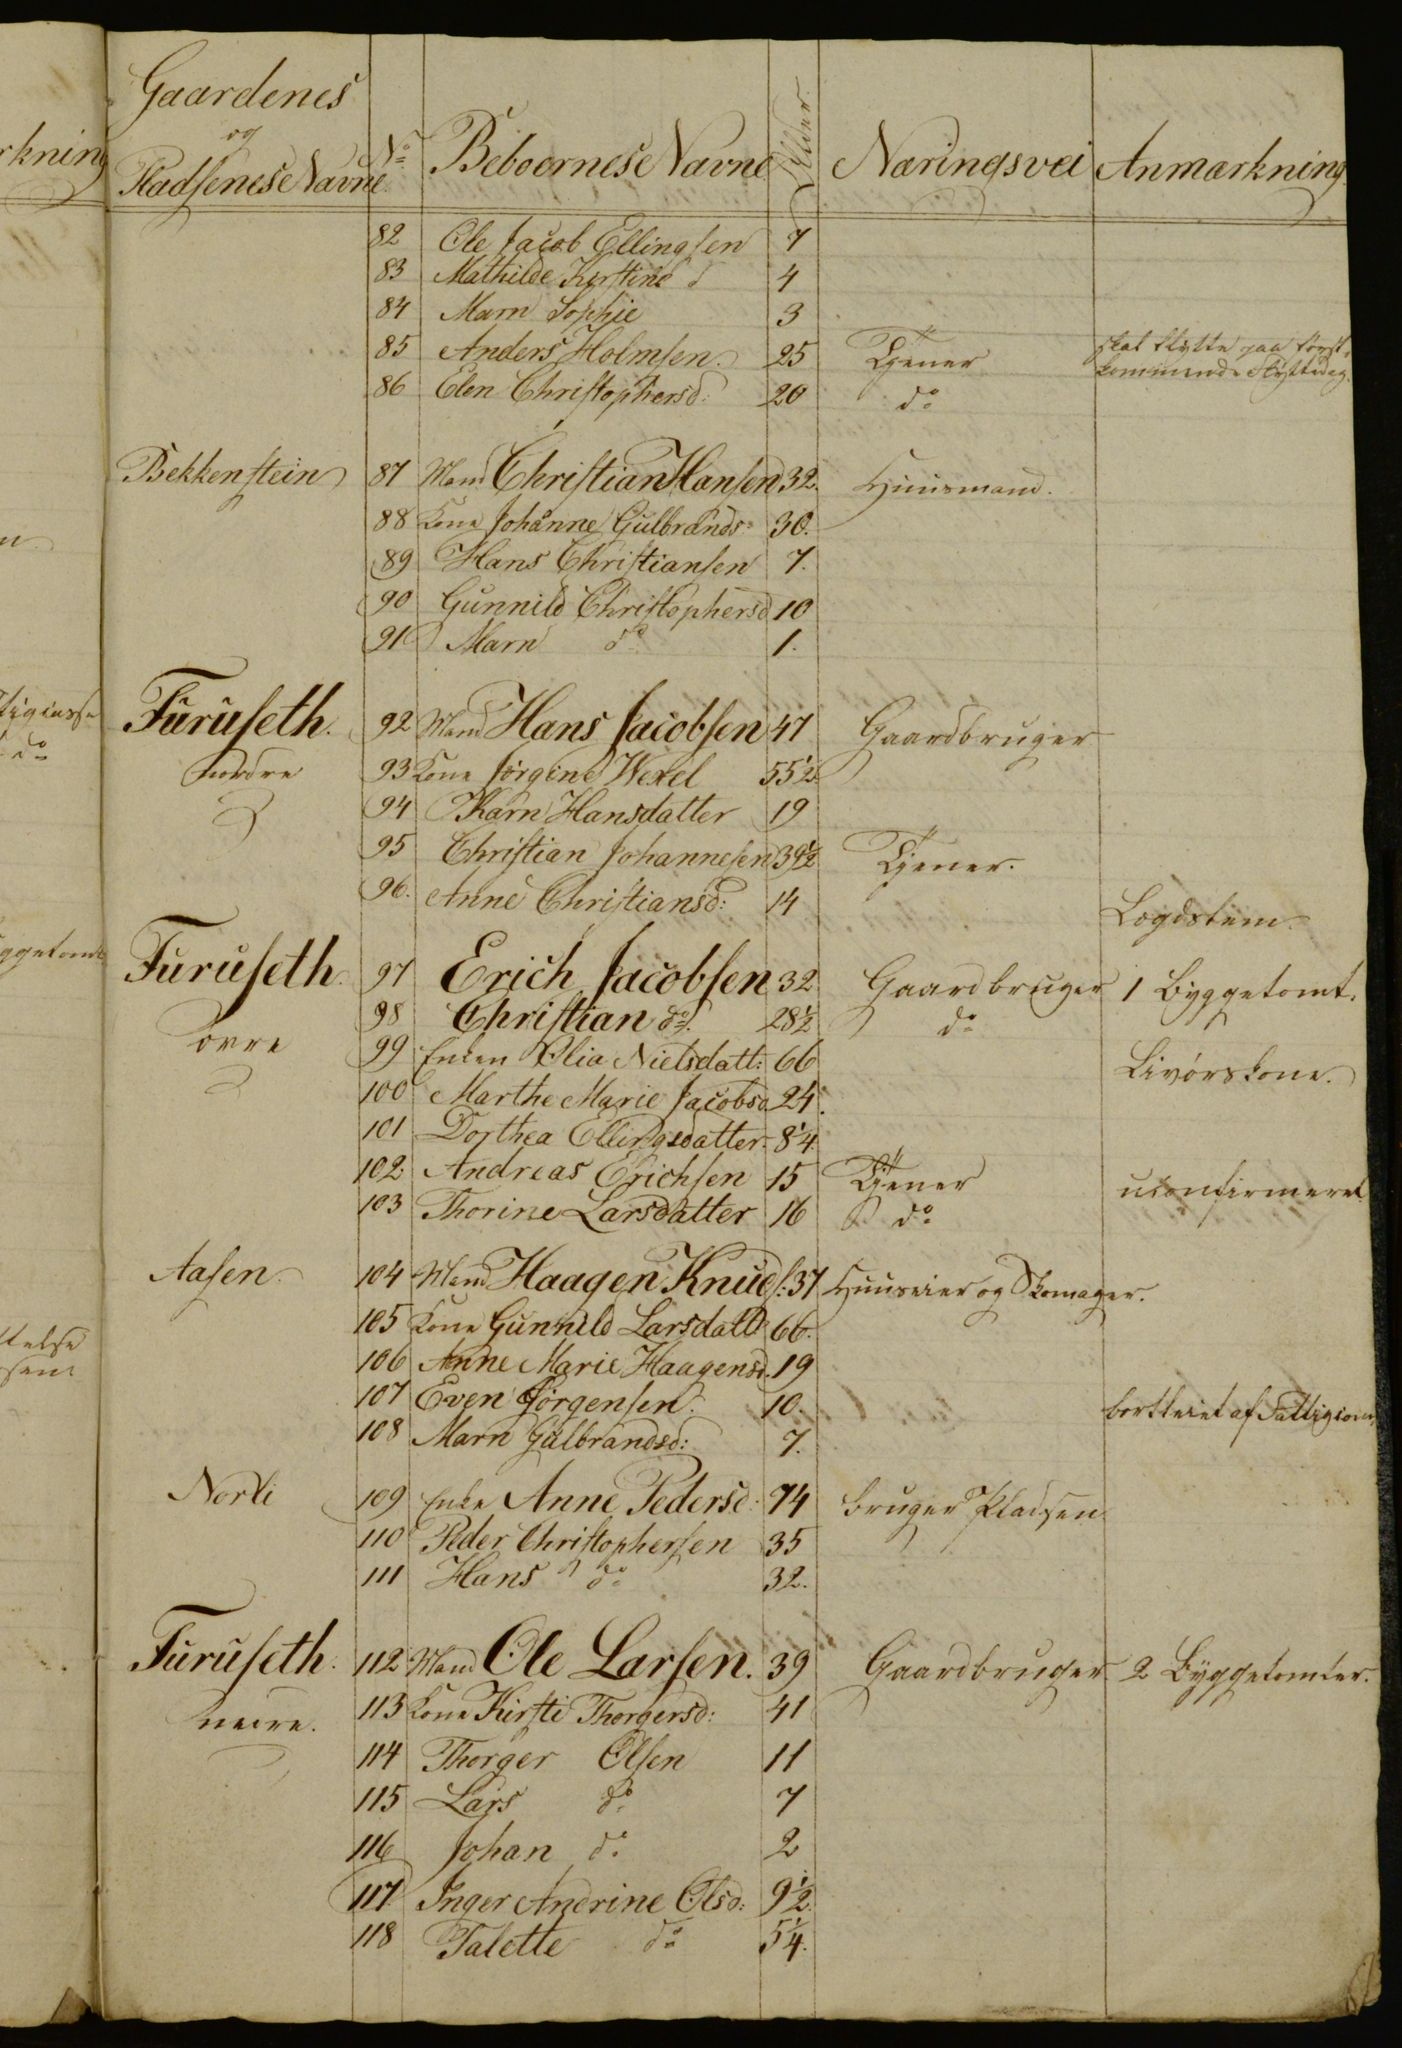 Gaardenes
og
Pladsenes Navne
No
Beboernes Navne
Alder.
Næringsvei
Anmærkning.
82 Ole Jacob Ellingsen 7
83 Mathilde Kirstine d 4
84 Marn Sophie 3
85 Anders Holmsen. 25 Tjener skal flytte paa først-
kommende Flyttedag.
86 Elen Christophersd: 20 do
Bekkenstein 87 Mand Christian Hansen 32. Huusmand.
88 Kone Johanne Gulbrands: 30.
89 Hans Christiansen 7.
90 Gunnild Christophersd 10
91 Marn do 1.
Furuseth. 92 Mand Hans Jacobsen 47 Gaardbruger
nordre 93 Kone Jørgine Wexel 55 1/2
94 Karn Hansdatter 19
95 Christian Johannesen 39 1/2 Tjener.
96. Anne Christiansd: 14
Logdstem
Furuseth. 97 Erich Jacobsen 32 Gaardbruger 1 Byggetomt.
98 Christian do. 28 1/2 do
øvre 99 Enken Olia Nielsdatt: 66 Livørskone.
100 Marthe Marie Jacobsd. 24.
101 Dorthea Ellingsdatter. 8 1/4
102: Andreas Erichsen 15 Tjener uconfirmeret
103 Thorine Larsdatter 16 do
Aasen. 104 Mand Haagen Knuds: 37 Huuseier og Skomager.
105 Kone Gunnild Larsdatt 66.
106 Anne Marie Haagensd. 19
107 Even Jørgensen. 10. bortleiet af Fattigcom
108 Marn Gulbrandsd: 7.
Norli 109 Enke Anne Pedersd: 74 bruger Pladsen
110 Peder Christophersen 35
111 Hans do 32.
Furuseth. 112 Mand Ole Larsen. 39 Gaardbruger 2 Byggetomter.
nedre. 113 Kone Kirsti Thorgersd: 41
114 Thorger Olsen 11
115 Lars do 7
116 Johan do 2
117 Inger Andrine Olsd: 9 1/2.
118 Talette do 5 1/4.